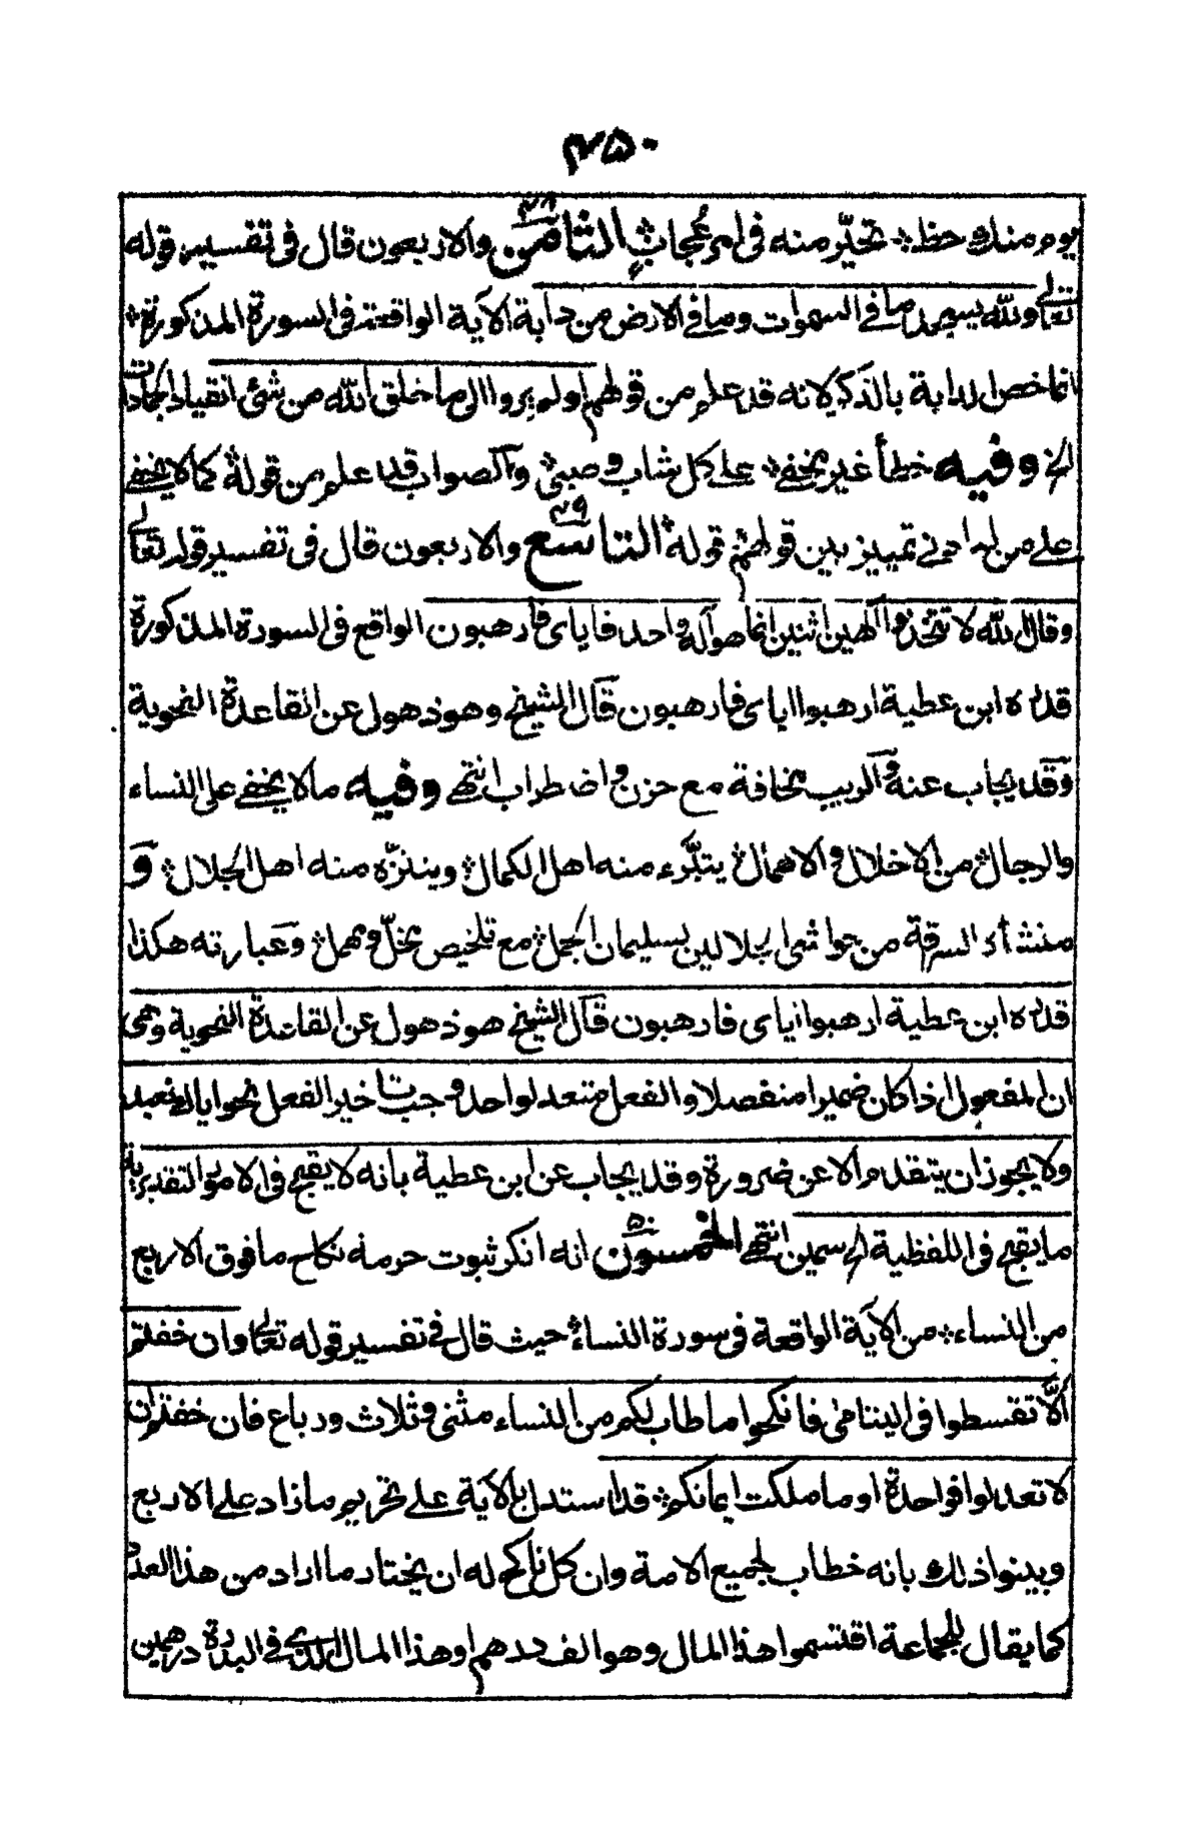 ۴۵۰
منه ذو حظ٭ تحيّر منه فى امر عُجاب٭ الثامن ۴۸ والاربعون قال فى تفسير قوله
تعالى ولله يسجد ما في السموات وما في الارض من دابة الآية الواقعة فى السورة المذكورة٭
انما خص الدابة بالذكر لانه قد علم من قولهم اولم يروا الى ما خلق الله من شئ انقياد الجمادات
الخ وفيه خطأ غير يخفے٭ على كل شاب وصبى٭ والصواب قد علم من قوله٭ كما لا يخفے
على من له ادنى تمييز بين قولهم٭ قوله٭ التاسع ۴۹ والاربعون قال فى تفسير قوله تعالى
وقال الله لا تتخذوا الهين اثنين انما هو آله واحد فاياى فارهبون الواقع فى السورة المذكورة
قدره ابن عطية ارهبوا اياى فارهبون قال الشيخ وهو ذهول عن القاعدة النحوية
وقد يجاب عنه والريب بخافة مع حزن واضطراب انتهے وفيه ما لا يخفے على النساء
والرجال٭ من الاخلال والاهمال٭ يتبرّء منه اهل الكمال٭ ويتنزّه منه اهل الجلال٭ و
منشأه السرقة من حواشى الجلالين لسليمان الجمل٭ مع تلخيص مخلّ ومهمل٭ وعبارته هكذا
قدره ابن عطية ارهبوا اياى فارهبون قال الشيخ هو ذهول عن القاعدة النحوية وهى
ان المفعول اذا كان ضميرا منفصلا والفعل متعد لواحد وجب تاخير الفعل نحو اياك نعبد
ولا يجوز ان يتقدم الا عن ضرورة وقد يجاب عن ابن عطية بانه لا يقبح فى الامور التقديرية
ما يقبح فى اللفظية اه سمين انتهے الخمسون ۵۰ انه انكر ثبوت حرمة نكاح ما فوق الاربع
من النساء٭ من الآية الواقعة فى سورة النساء٭ حيث قال فى تفسير قوله تعالى وان خفتم
ألّا تقسطوا فى اليتامى فانكحوا ما طاب لكم من النساء مثنى وثلاث ورباع فان خفتم ان
لا تعدلوا فواحدة او ما ملكت ايمانكم٭ قد استدل بالآية على تحريم ما زاد على الاربع
وبينوا ذلك بانه خطاب لجميع الامة وان كل ناكح له ان يختار ما اراد من هذا العدد
كما يقال للجماعة اقتسموا هذا المال وهو الف درهم او هذا المال الذي في البدرة درهمين